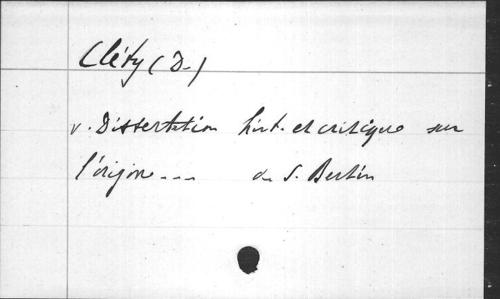 Cléty (D.)
v. Dissertation hist. et critique sur
l'origine... de S. Bertin